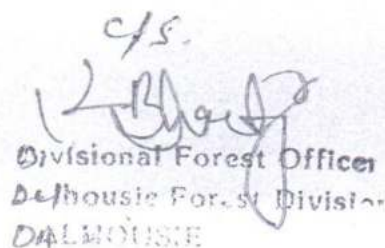 c/s.
Divisional Forest Officer
Dalhousie Forest Division
DALHOUSIE